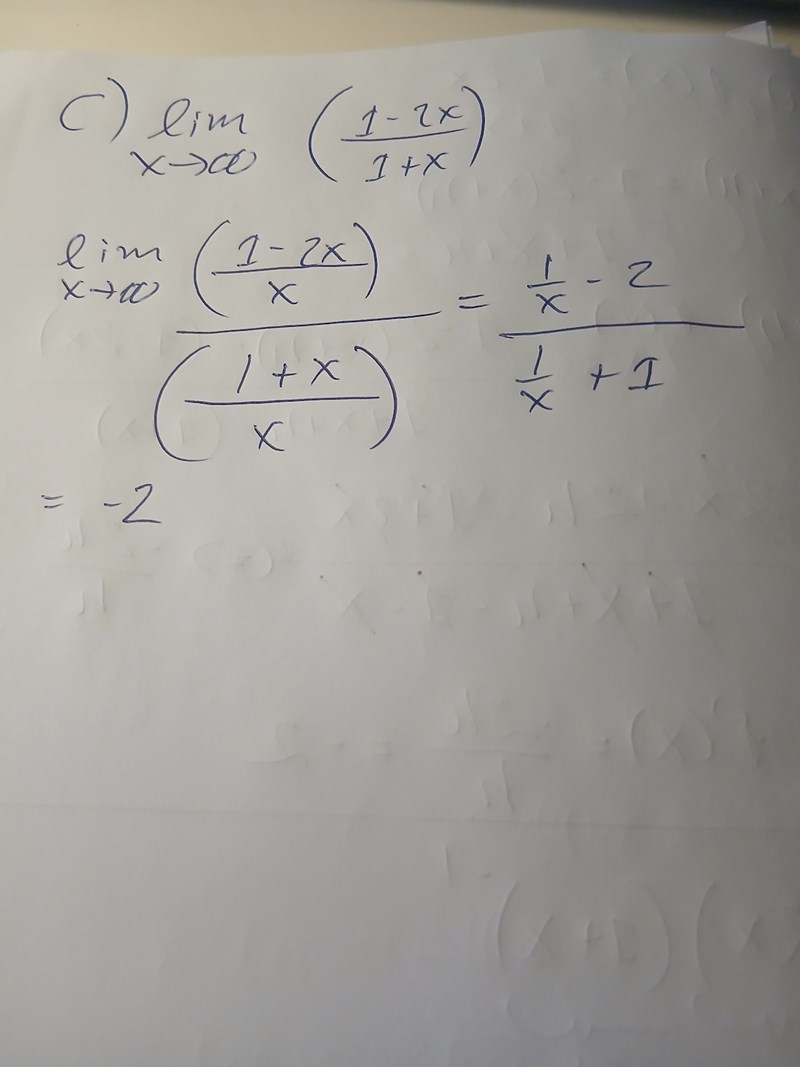 C) lim x→∞ ((1-2x)/(1+x))
lim x→∞ ((1-2x)/x)/((1+x)/x) = (1/x - 2)/(1/x + 1)
= -2